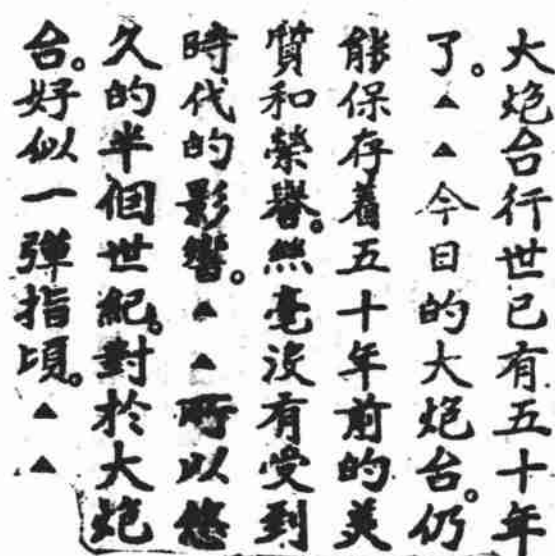 大炮台行世已有五十年
了。▲▲今日的大炮台。仍
能保存着五十年前的美
質和榮譽。絲毫沒有受到
時代的影響。▲▲所以悠
久的半個世紀。對於大炮
台。好似一彈指頃。▲▲